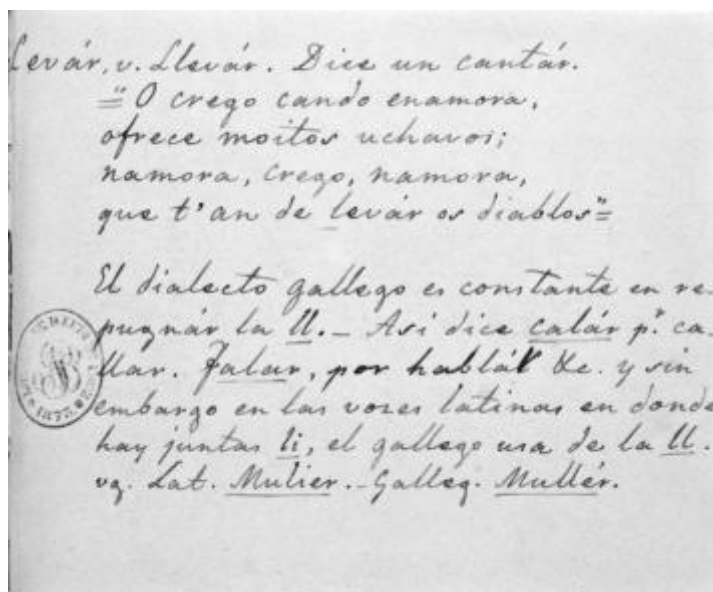 Levár, v. Llevár. Dice un cantár.
="O crego cando enamora,
ofrece moitos uchavos;
namora, crego, namora,
que t'an de levár os diablos"=
El dialecto gallego es constante en re-
pugnár la ll.- Así dice calár pr. ca-
llar. Falar, por hablár &c. y sin
embargo en las voces latinas en donde
hay juntas li, el gallego usa de la ll.
vg. Lat. Mulier.- Galleg. Mullér.